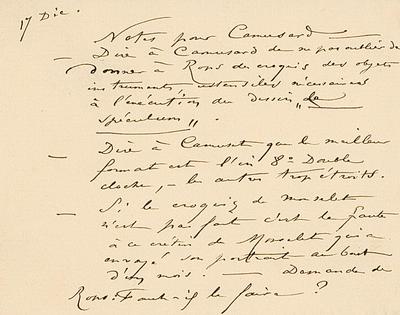 17 Dec.
Notes pour Camusard —
— Dire à Camusard de ne pas oublier de
donner à Rops des croquis des objets
instruments, ustensiles nécessaires
à l'exécution du dessin „Le
spéculum„.
— Dire à Camuset que le meilleur
format est l'in 8º Double
cloche, — les autres trop étroits.
— Si le croquis de Monselet
n'est pas fait c'est la faute
à ce crétin de Monselet qui a
envoyé son portrait au bout
d'un mois. — Demande de
Rops: Faut-il le faire ?